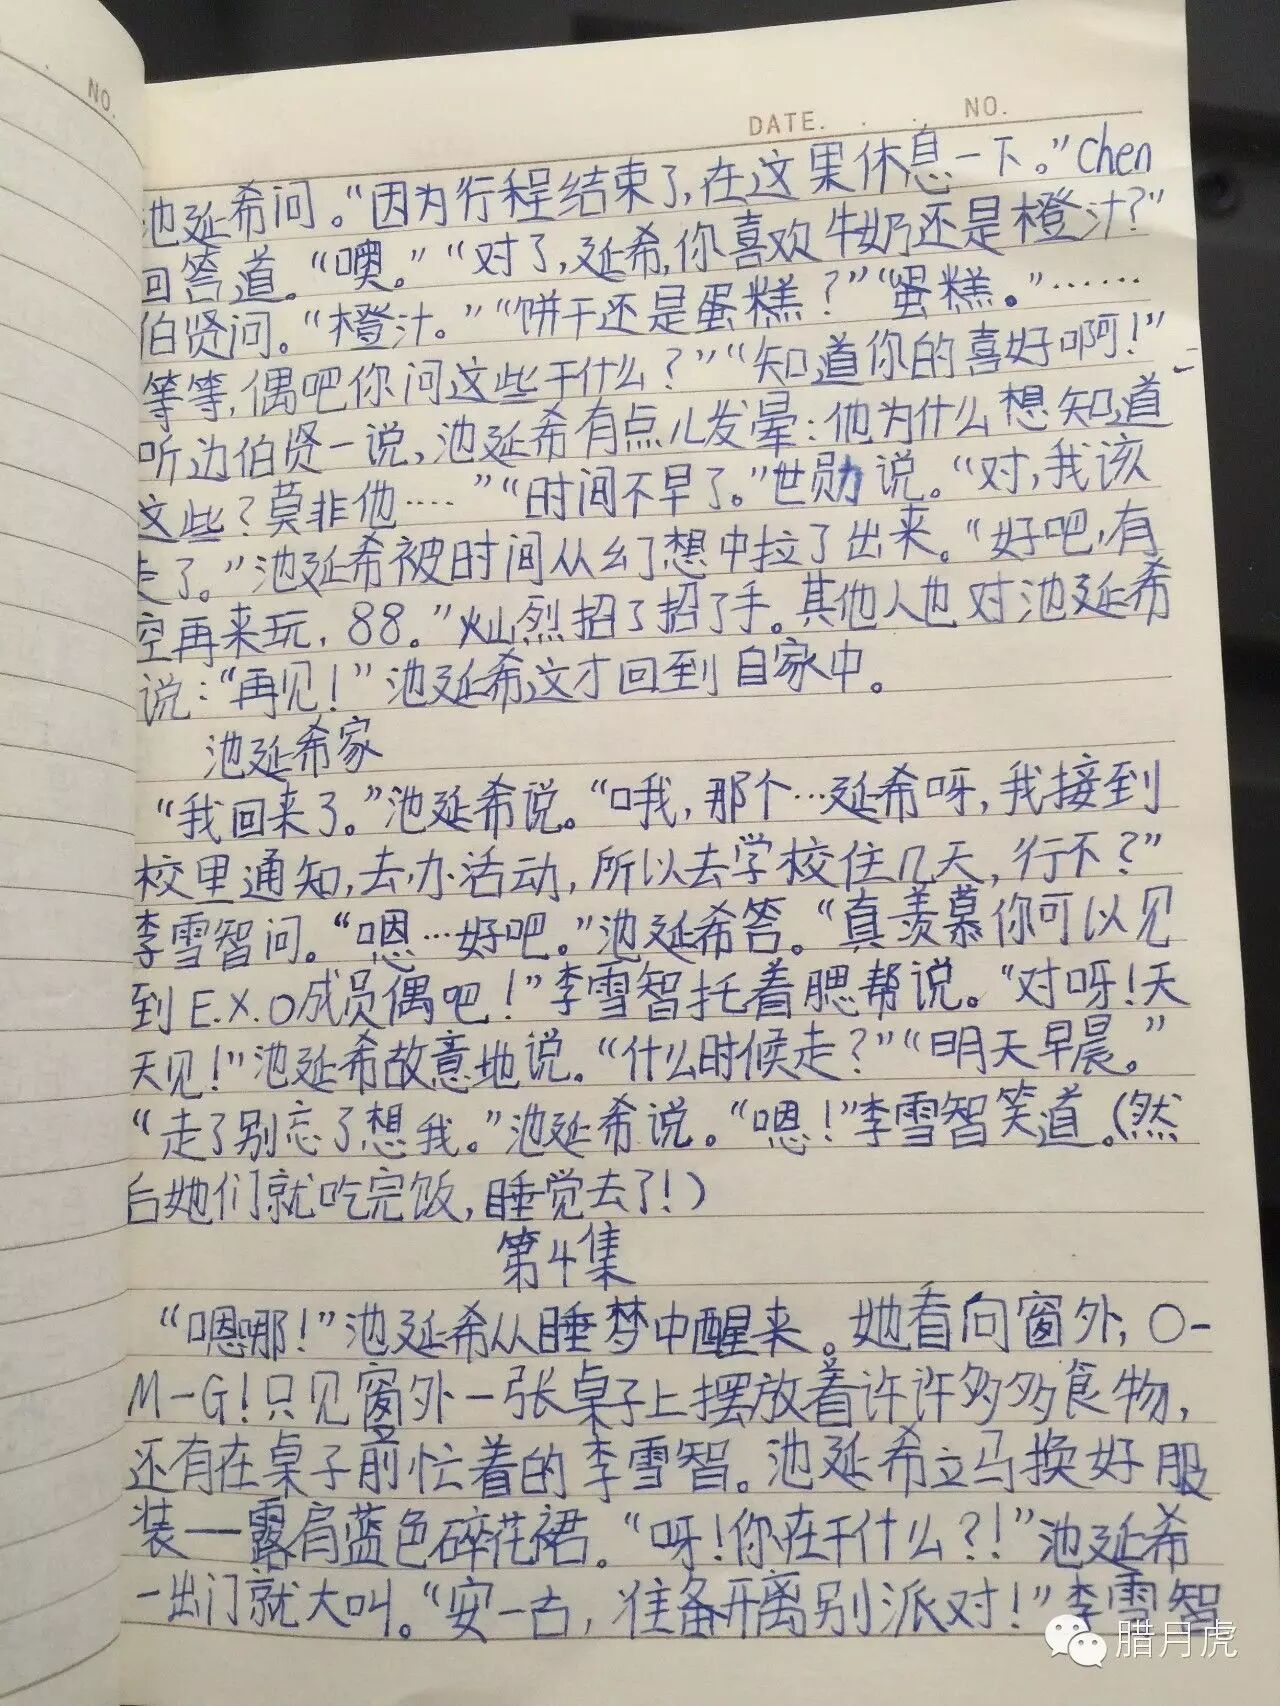 NO.
DATE. . . NO.
池延希问。“因为行程结束了,在这里休息一下。”Chen
回答道。“噢。”“对了,延希,你喜欢牛奶还是橙汁?”
伯贤问。“橙汁。”“饼干还是蛋糕?”“蛋糕。”……
等等,偶吧你问这些干什么?”“知道你的喜好啊!”
听边伯贤一说,池延希有点儿发晕:他为什么想知道
这些?莫非他……”“时间不早了。”世勋说。“对,我该
走了。”池延希被时间从幻想中拉了出来。“好吧,有
空再来玩,88。”灿烈招了招了手。其他人也对池延希
说:“再见!”池延希这才回到自家中。
池延希家
“我回来了。”池延希说。“哦,那个…延希呀,我接到
校里通知,去办活动,所以去学校住几天,行不?”
李雪智问。“嗯…好吧。”池延希答。“真羡慕你可以见
到E.X.O成员偶吧!”李雪智托着腮帮说。“对呀!天
天见!”池延希故意地说。“什么时候走?”“明天早晨。”
“走了别忘了想我。”池延希说。“嗯!”李雪智笑道。(然
后她们就吃完饭,睡觉去了!)
第4集
“嗯哪!”池延希从睡梦中醒来。她看向窗外,O-
M-G!只见窗外一张桌子上摆放着许许多多食物,
还有在桌子前忙着的李雪智。池延希立马换好服
装——露肩蓝色碎花裙。“呀!你在干什么?!”池延希
一出门就大叫。“安一古,准备开离别派对!”李雪智
腊月虎